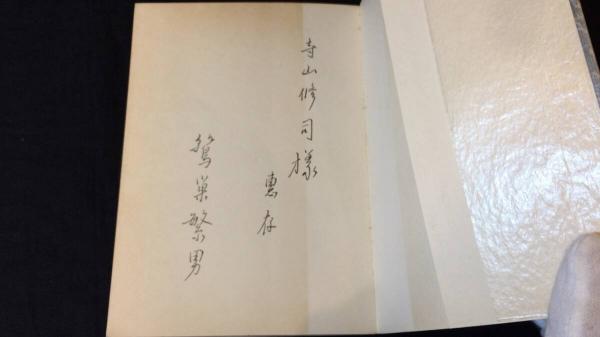 寺山修司様
惠存
鷲巣繁男